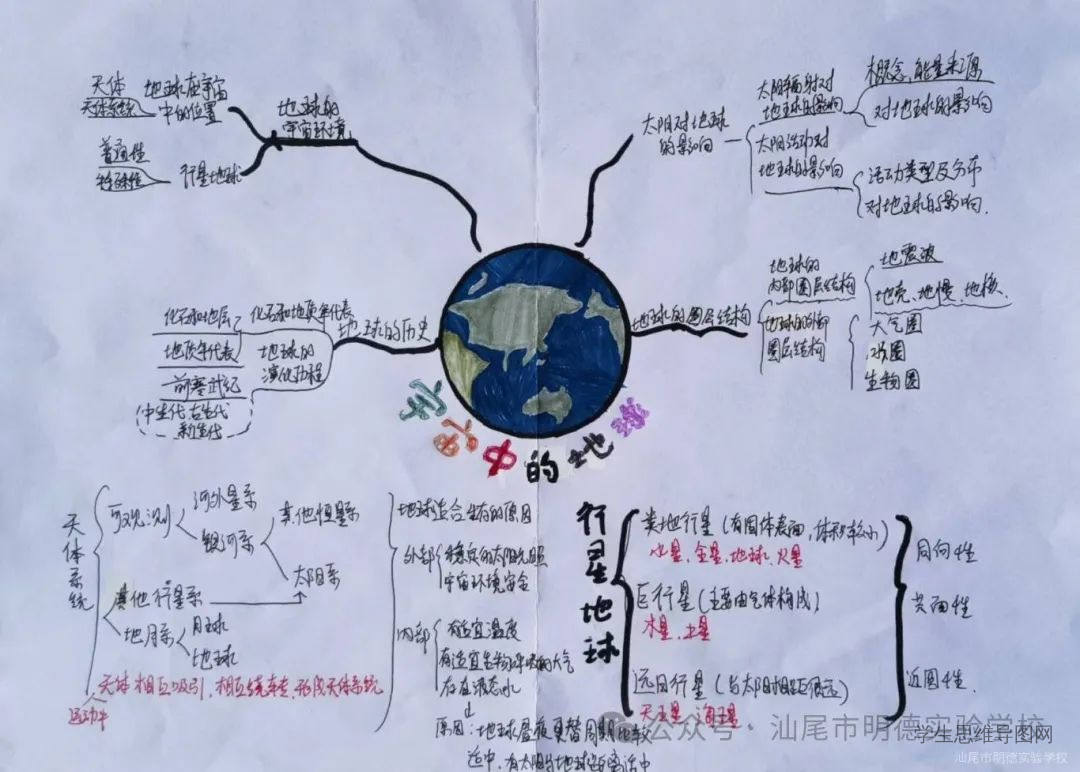 天体
天体系统
地球在宇宙
中的位置
普通性
特殊性
行星地球
地球的
宇宙环境
太阳对地球
的影响
太阳辐射对
地球的影响
概念、能量来源
对地球的影响
太阳活动对
地球的影响
活动类型及分布
对地球的影响.
化石和地层
地质年代表
化石和地质年代表
前寒武纪
中生代 古生代
新生代
地球的
演化历程
地球的历史
地球的圈层结构
地球的
内部圈层结构
地震波
地壳、地慢、地核、
地球的外部
圈层结构
大气圈
水圈
生物圈
宇宙中的地球
天体系统
可观测
河外星系
银河系
其他恒星系
太阳系
其他行星系
地月系
月球
地球
天体相互吸引,相互绕转,形成天体系统
运动中
地球适合生存的原因
外部
稳定的太阳光照
宇宙环境安全
内部
有适宜温度
有适宜生物呼吸的大气
存在液态水
原因:地球昼夜更替周期比较
适中,有太阳与地球距离适中
行星地球
类地行星(有固体表面,体积较小)
水星、金星、地球、火星
巨行星(主要由气体构成)
木星、土星
远日行星(与太阳相距很远)
天王星、海王星
同向性
共面性
近圆性.
公众号·汕尾市明德实验学校
学生思维导图网
汕尾市明德实验学校